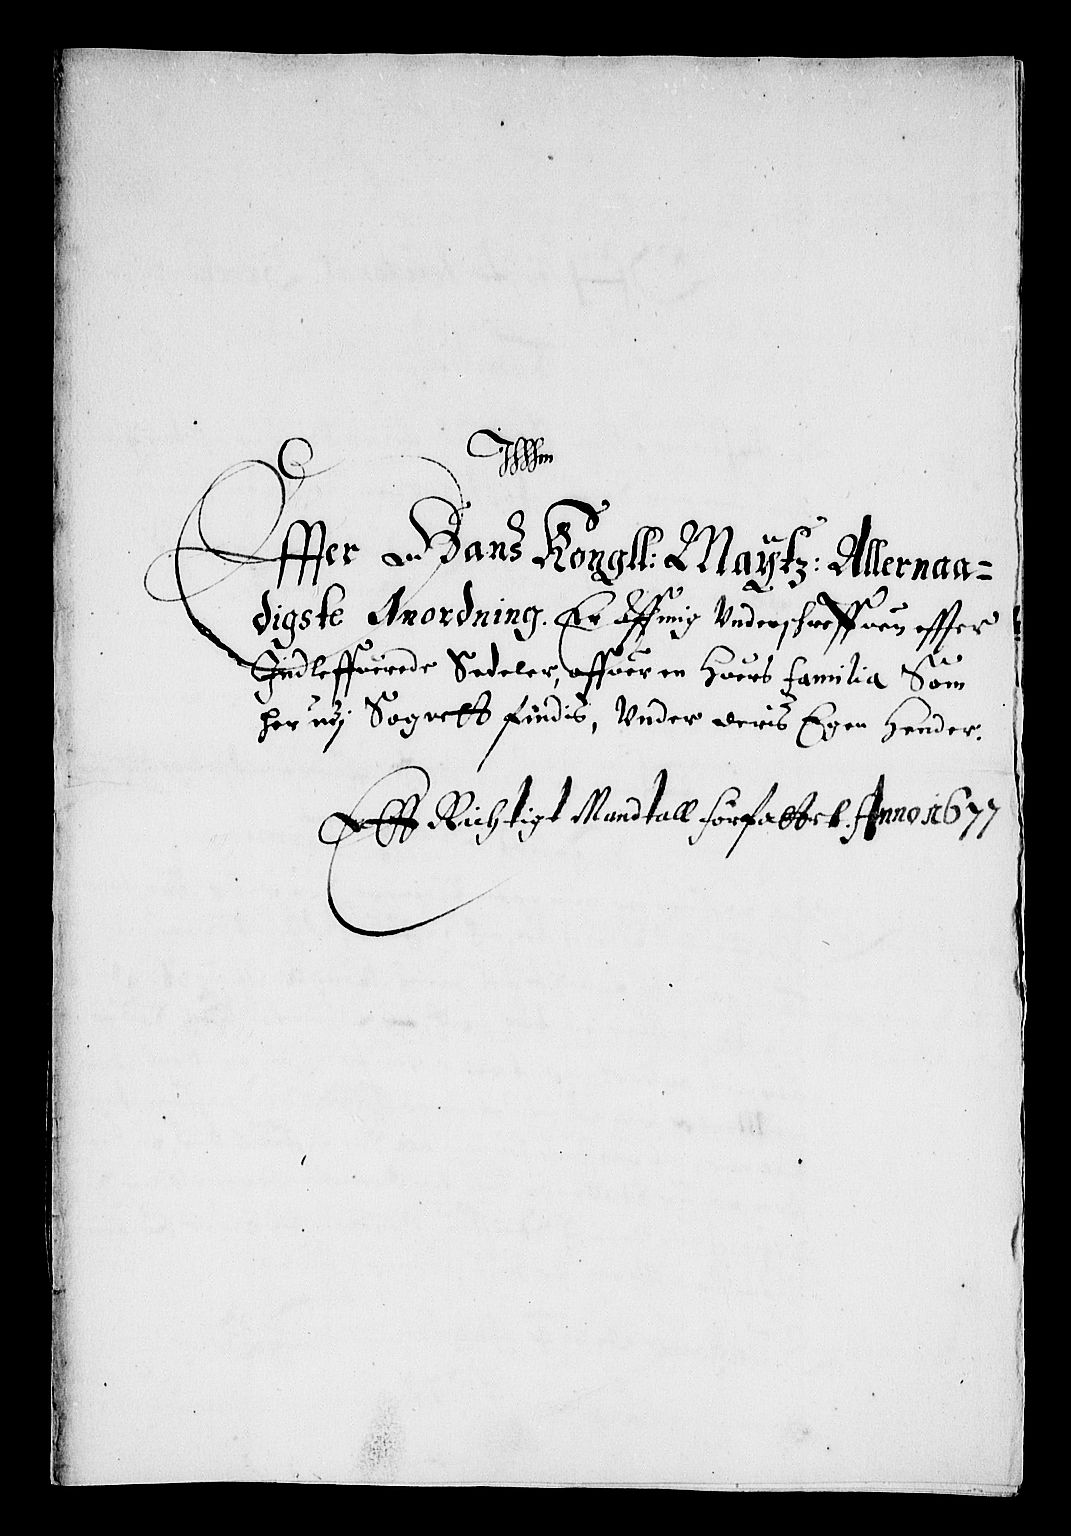 Effter Hans Kongll: Maÿtz: Allernaa=
digste Anordning. Er Aff mig Underschreffven effter
Indleffverede Sedeler, offver en Hvers familia Som
her udj Sognett findis, Under deris Egen Hender.
Ett Richtigt Mandtall forfattet. Anno 1677